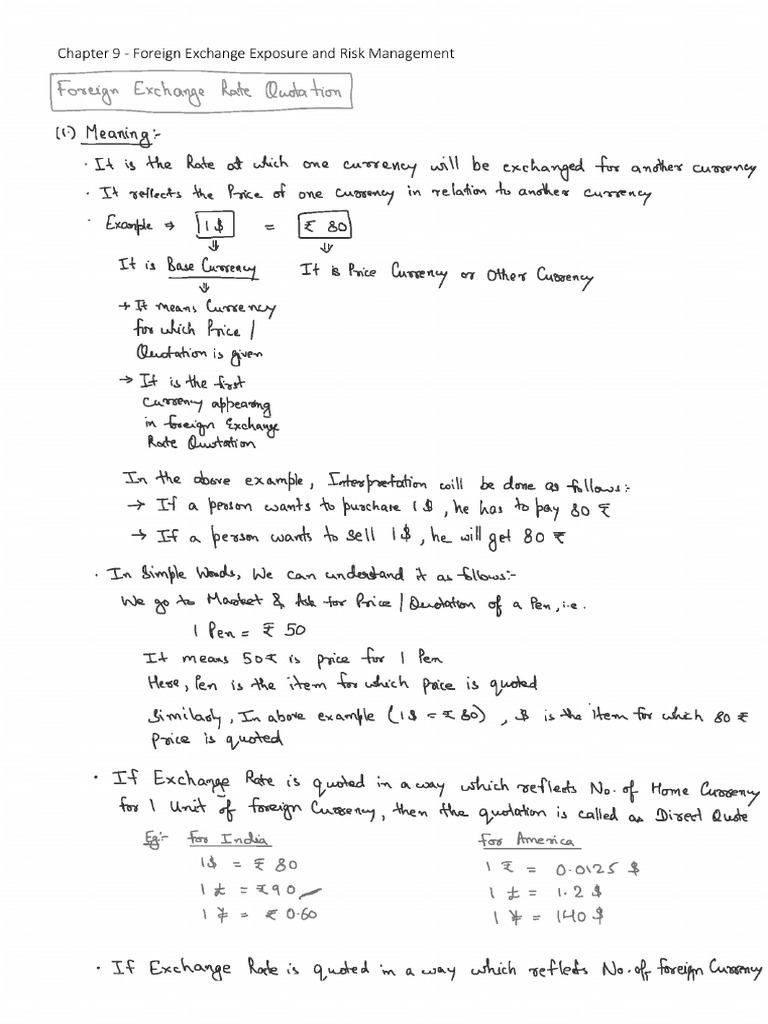 Chapter 9 - Foreign Exchange Exposure and Risk Management
Foreign Exchange Rate Quotation
(1.) Meaning:-
· It is the Rate at which one currency will be exchanged for another currency
· It reflects the Price of one currency in relation to another currency
· Example ⇒ 1$ = ₹ 80
It is Base Currency It is Price Currency or Other Currency
→ It means Currency
for which Price /
Quotation is given
→ It is the first
currency appearing
in foreign Exchange
Rate Quotation
In the above example, Interpretation will be done as follows:-
→ If a person wants to purchase 1$, he has to pay 80 ₹
→ If a person wants to sell 1$, he will get 80 ₹
· In Simple Words, We can understand it as follows:-
We go to Market & Ask for Price / Quotation of a Pen, i.e.
1 Pen = ₹ 50
It means 50₹ is price for 1 Pen
Here, Pen is the item for which price is quoted
Similarly, In above example (1$ = ₹ 80), $ is the item for which 80 ₹
price is quoted
· If Exchange Rate is quoted in a way which reflects No. of Home Currency
for 1 Unit of foreign Currency, then the quotation is called as Direct Quote
Eg:- For India For America
1$ = ₹ 80 1 ₹ = 0.0125 $
1 £ = ₹90 1 £ = 1.2 $
1 ¥ = ₹ 0.60 1 ¥ = 140 $
· If Exchange Rate is quoted in a way which reflects No. of foreign Currency